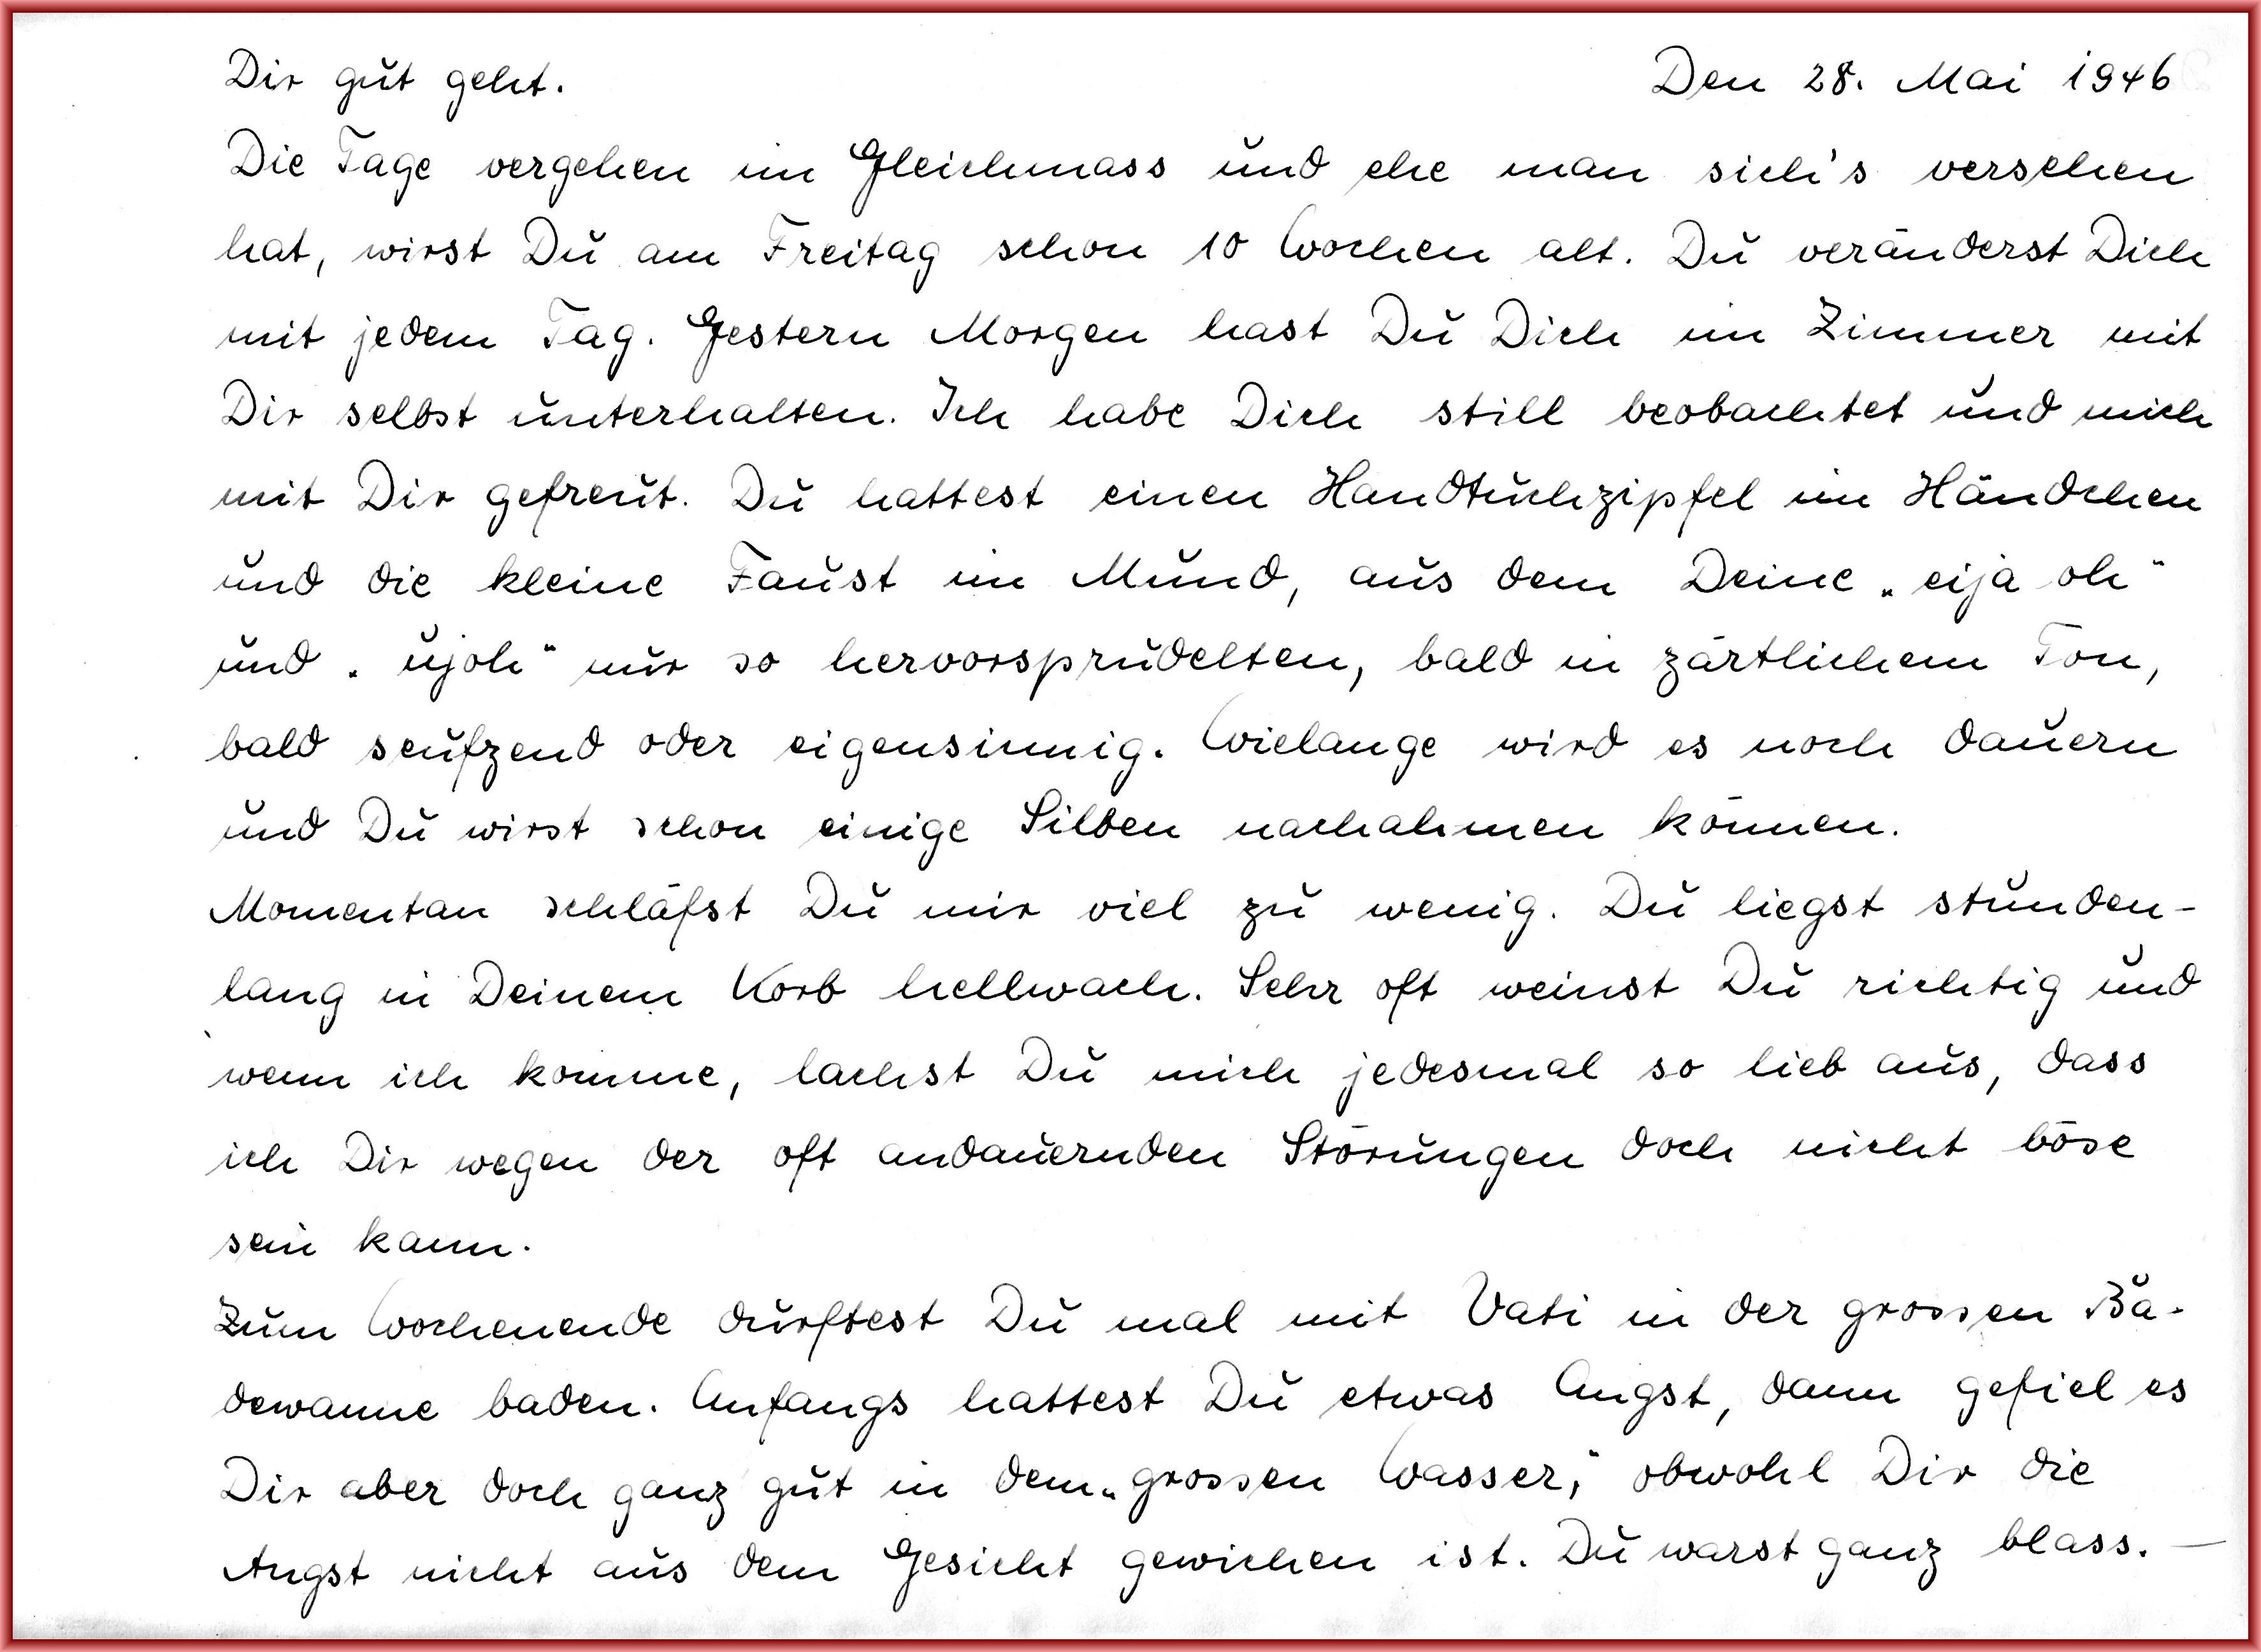 Dir gut geht. Den 28. Mai 1946
Die Tage vergehen im Gleichmass und ehe man sich's versehen
hat, wirst Du am Freitag schon 10 Wochen alt. Du veränderst Dich
mit jedem Tag. Gestern Morgen hast Du Dich im Zimmer mit
Dir selbst unterhalten. Ich habe Dich still beobachtet und mich
mit Dir gefreut. Du hattest einen Handtuchzipfel im Händchen
und die kleine Faust im Mund, aus dem Deine „eija oh“
und „ujoh“ nur so hervorsprudelten, bald in zärtlichem Ton,
bald seufzend oder eigensinnig. Wielange wird es noch dauern
und Du wirst schon einige Silben nachahmen können.
Momentan schläfst Du mir viel zu wenig. Du liegst stunden-
lang in Deinem Korb hellwach. Sehr oft weinst Du richtig und
wenn ich komme, lachst Du mich jedesmal so lieb aus, dass
ich Dir wegen der oft andauernden Störungen doch nicht böse
sein kann.
Zum Wochenende durftest Du mal mit Vati in der grossen Ba-
dewanne baden. Anfangs hattest Du etwas Angst, dann gefiel es
Dir aber doch ganz gut in dem „grossen Wasser“, obwohl Dir die
Angst nicht aus dem Gesicht gewichen ist. Du warst ganz blass. —